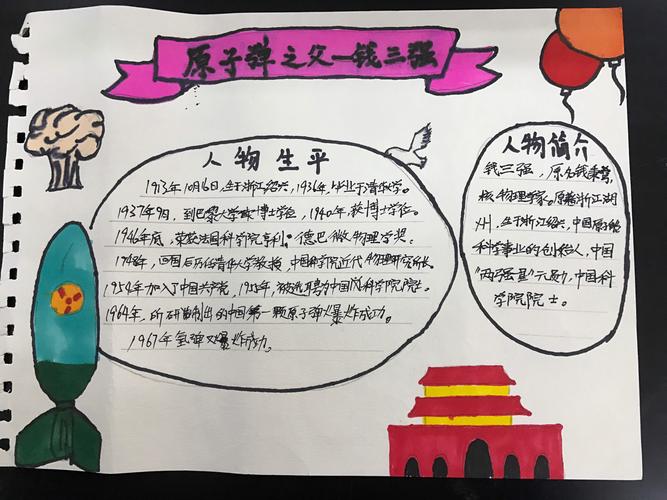 原子弹之父—钱三强
人物生平
1913年10月16日,生于浙江绍兴,1936年,毕业于清华大学。
1937年9月,到巴黎大学攻博士学位,1940年,获博士学位。
1946年底,荣获法国科学院亨利·德巴微物理学奖。
1948年,回国后历任清华大学教授,中国科学院近代物理研究所所长。
1954年加入了中国共产党,1955年,被选聘为中国科学院院士。
1964年,所研制出的中国第一颗原子弹爆炸成功。
1967年氢弹又爆炸成功。
人物简介
钱三强,原名钱秉穹,
核物理学家。原籍浙江湖
州,生于浙江绍兴,中国原子能
科学事业的创始人,中国
"两弹一星"元勋,中国科
学院院士。